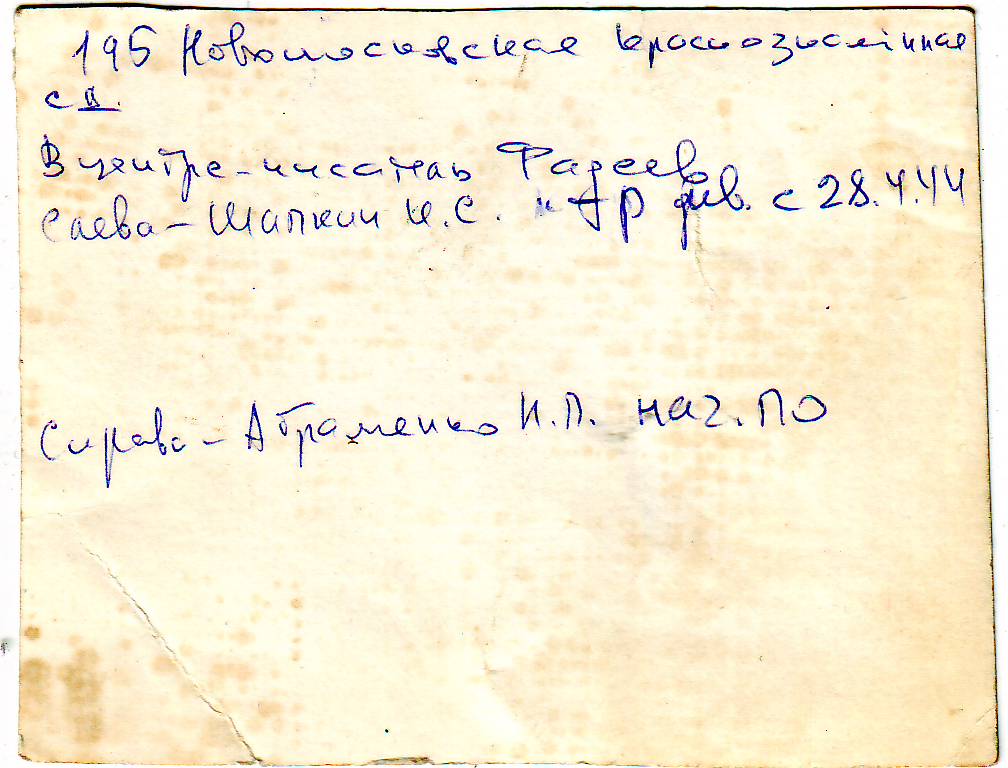 195 Новомосковская краснознамённая
сд.
В центре - писатель Фадеев
Слева - Шапкин И.С. к-р див. с 28.4.44
Справа - Абраменко И.П. нач. ПО